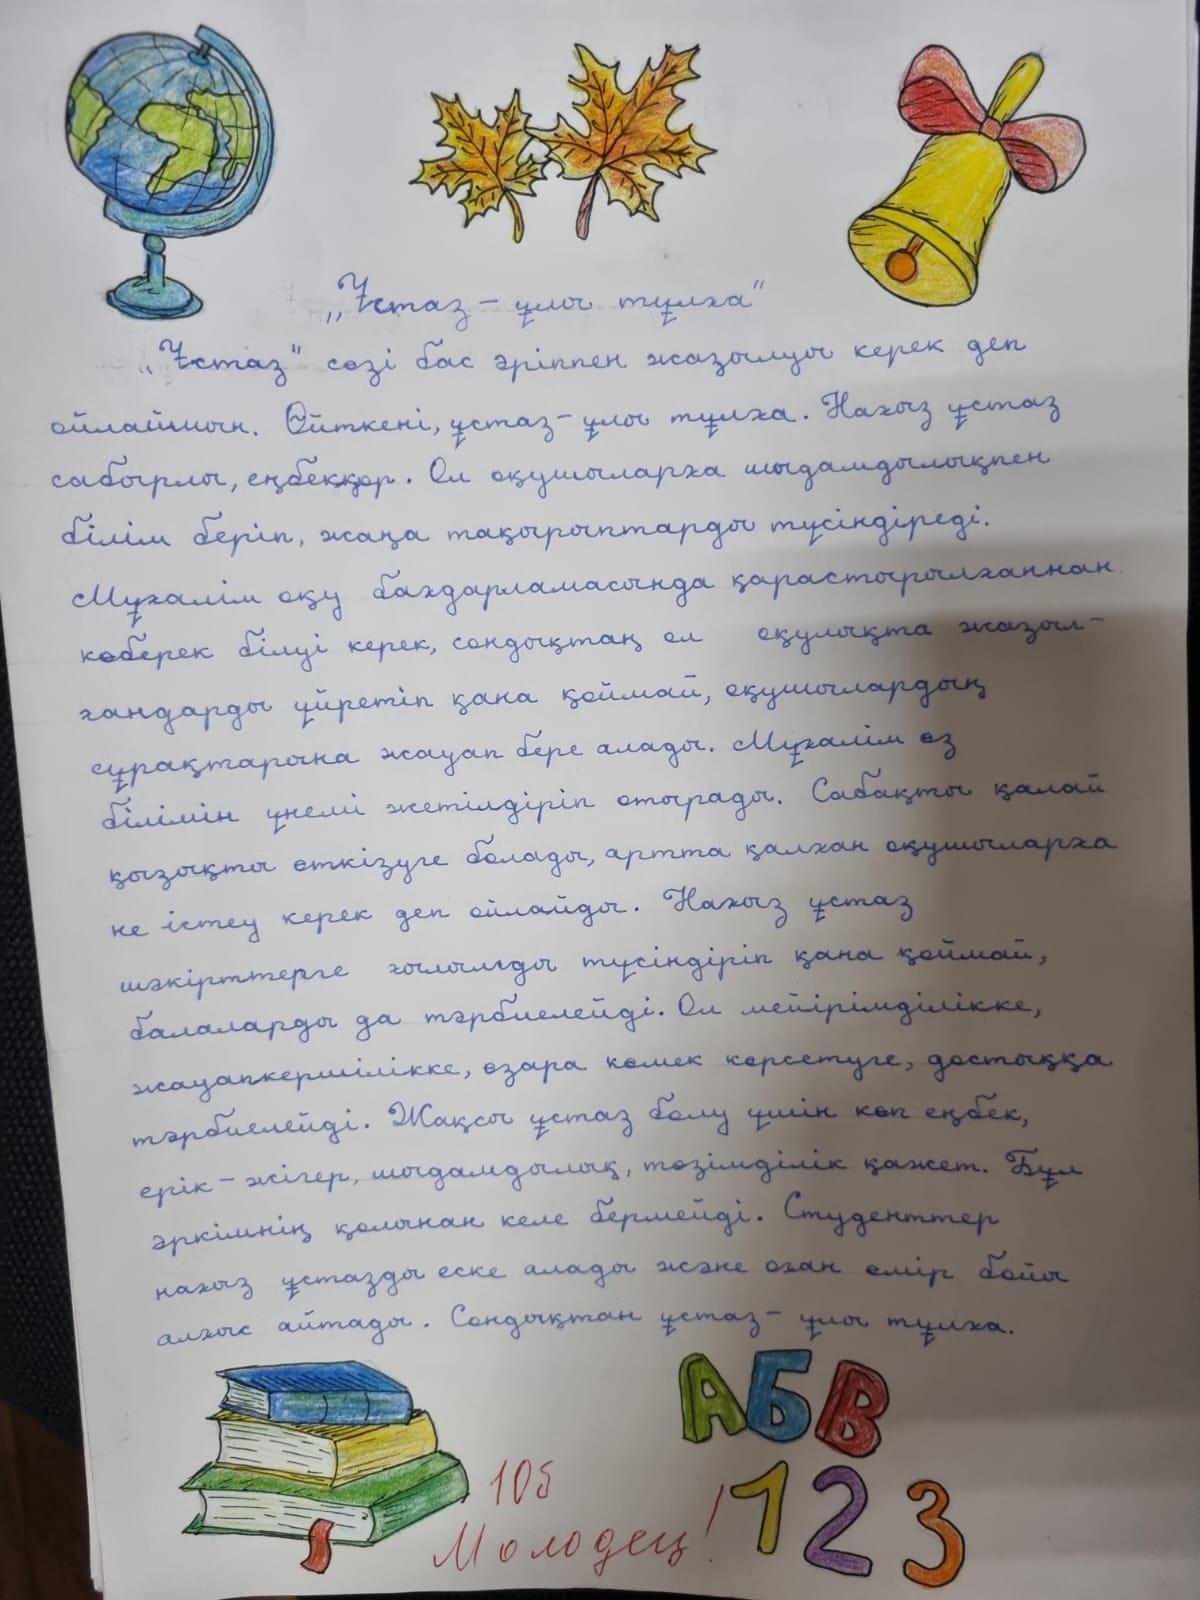 „Ұстаз – ұлы тұлға"
„Ұстаз" сөзі бас әріппен жазылуы керек деп
ойлаймын. Өйткені, ұстаз – ұлы тұлға. Нағыз ұстаз
сабырлы, еңбекқор. Ол оқушыларға шыдамдылықпен
білім беріп, жаңа тақырыптарды түсіндіреді.
Мұғалім оқу бағдарламасында қарастырылғаннан
көберек білуі керек, сондықтаң ол оқулықта жазыл-
ғандарды үйретіп қана қоймай, оқушылардың
сұрақтарына жауап бере алады. Мұғалім өз
білімін үнемі жетілдіріп отырады. Сабақты қалай
қызықты өткізуге болады, артта қалған оқушыларға
не істеу керек деп ойлайды. Нағыз ұстаз
шәкірттерге ғылымды түсіндіріп қана қоймай,
балаларды да тәрбиелейді. Ол мейірімділікке,
жауапкершілікке, өзара көмек көрсетуге, достыққа
тәрбиелейді. Жақсы ұстаз болу үшін көп еңбек,
ерік – жігер, шыдамдылық, төзімділік қажет. Бұл
әркімнің қолынан келе бермейді. Студенттер
нағыз ұстазды еске алады және оған өмір бойы
алғыс айтады. Сондықтан ұстаз – ұлы тұлға.
АБВ
10б
Молодец!
123